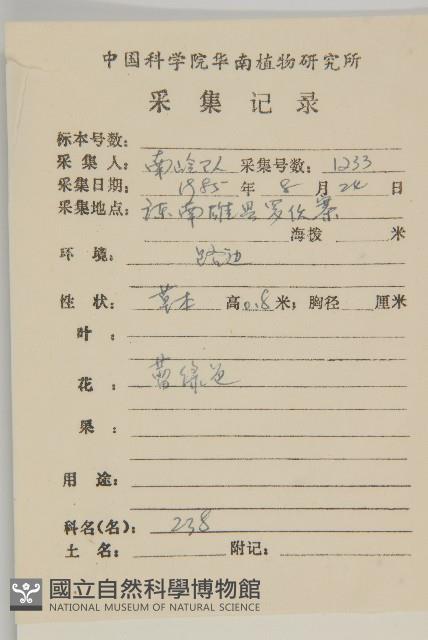 中国科学院华南植物研究所
采集记录
标本号数:
采集人: 南岭队 采集号数: 1233
采集日期: 1985 年 8 月 24 日
采集地点: 南雄县
海拨 米
环境: 路边
性状: 草本 高0.8米; 胸径 厘米
叶:
花: 绿色
果:
用途:
科名(名): 238
土名: 附记:
國立自然科學博物館
NATIONAL MUSEUM OF NATURAL SCIENCE